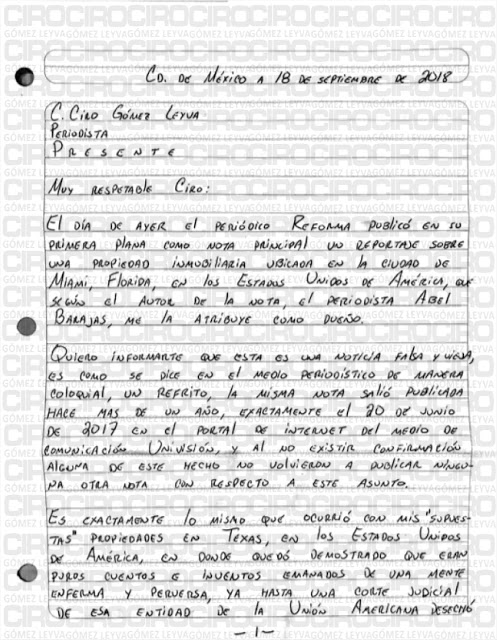 CD. DE MÉXICO A 18 DE SEPTIEMBRE DE 2018
C. CIRO GÓMEZ LEYVA
PERIODISTA
P R E S E N T E
MUY RESPETABLE CIRO:
EL DÍA DE AYER EL PERIÓDICO REFORMA PUBLICÓ EN SU
PRIMERA PLANA COMO NOTA PRINCIPAL UN REPORTAJE SOBRE
UNA PROPIEDAD INMOBILIARIA UBICADA EN LA CIUDAD DE
MIAMI, FLORIDA, EN LOS ESTADOS UNIDOS DE AMÉRICA, QUE
SEGÚN EL AUTOR DE LA NOTA, EL PERIODISTA ABEL
BARAJAS, ME LA ATRIBUYE COMO DUEÑO.
QUIERO INFORMARTE QUE ESTA ES UNA NOTICIA FALSA Y VIEJA,
ES COMO SE DICE EN EL MEDIO PERIODÍSTICO DE MANERA
COLOQUIAL, UN REFRITO, LA MISMA NOTA SALIÓ PUBLICADA
HACE MAS DE UN AÑO, EXACTAMENTE EL 20 DE JUNIO
DE 2017 EN EL PORTAL DE INTERNET DEL MEDIO DE
COMUNICACIÓN UNIVISIÓN, Y AL NO EXISTIR CONFIRMACIÓN
ALGUNA DE ESTE HECHO NO VOLVIERON A PUBLICAR NINGU-
NA OTRA NOTA CON RESPECTO A ESTE ASUNTO.
ES EXACTAMENTE LO MISMO QUE OCURRIÓ CON MIS "SUPUES-
TAS" PROPIEDADES EN TEXAS, EN LOS ESTADOS UNIDOS
DE AMÉRICA, EN DONDE QUEDÓ DEMOSTRADO QUE ERAN
PUROS CUENTOS E INVENTOS EMANADOS DE UNA MENTE
ENFERMA Y PERVERSA, YA HASTA UNA CORTE JUDICIAL
DE ESA ENTIDAD DE LA UNIÓN AMERICANA DESECHÓ
- 1 -